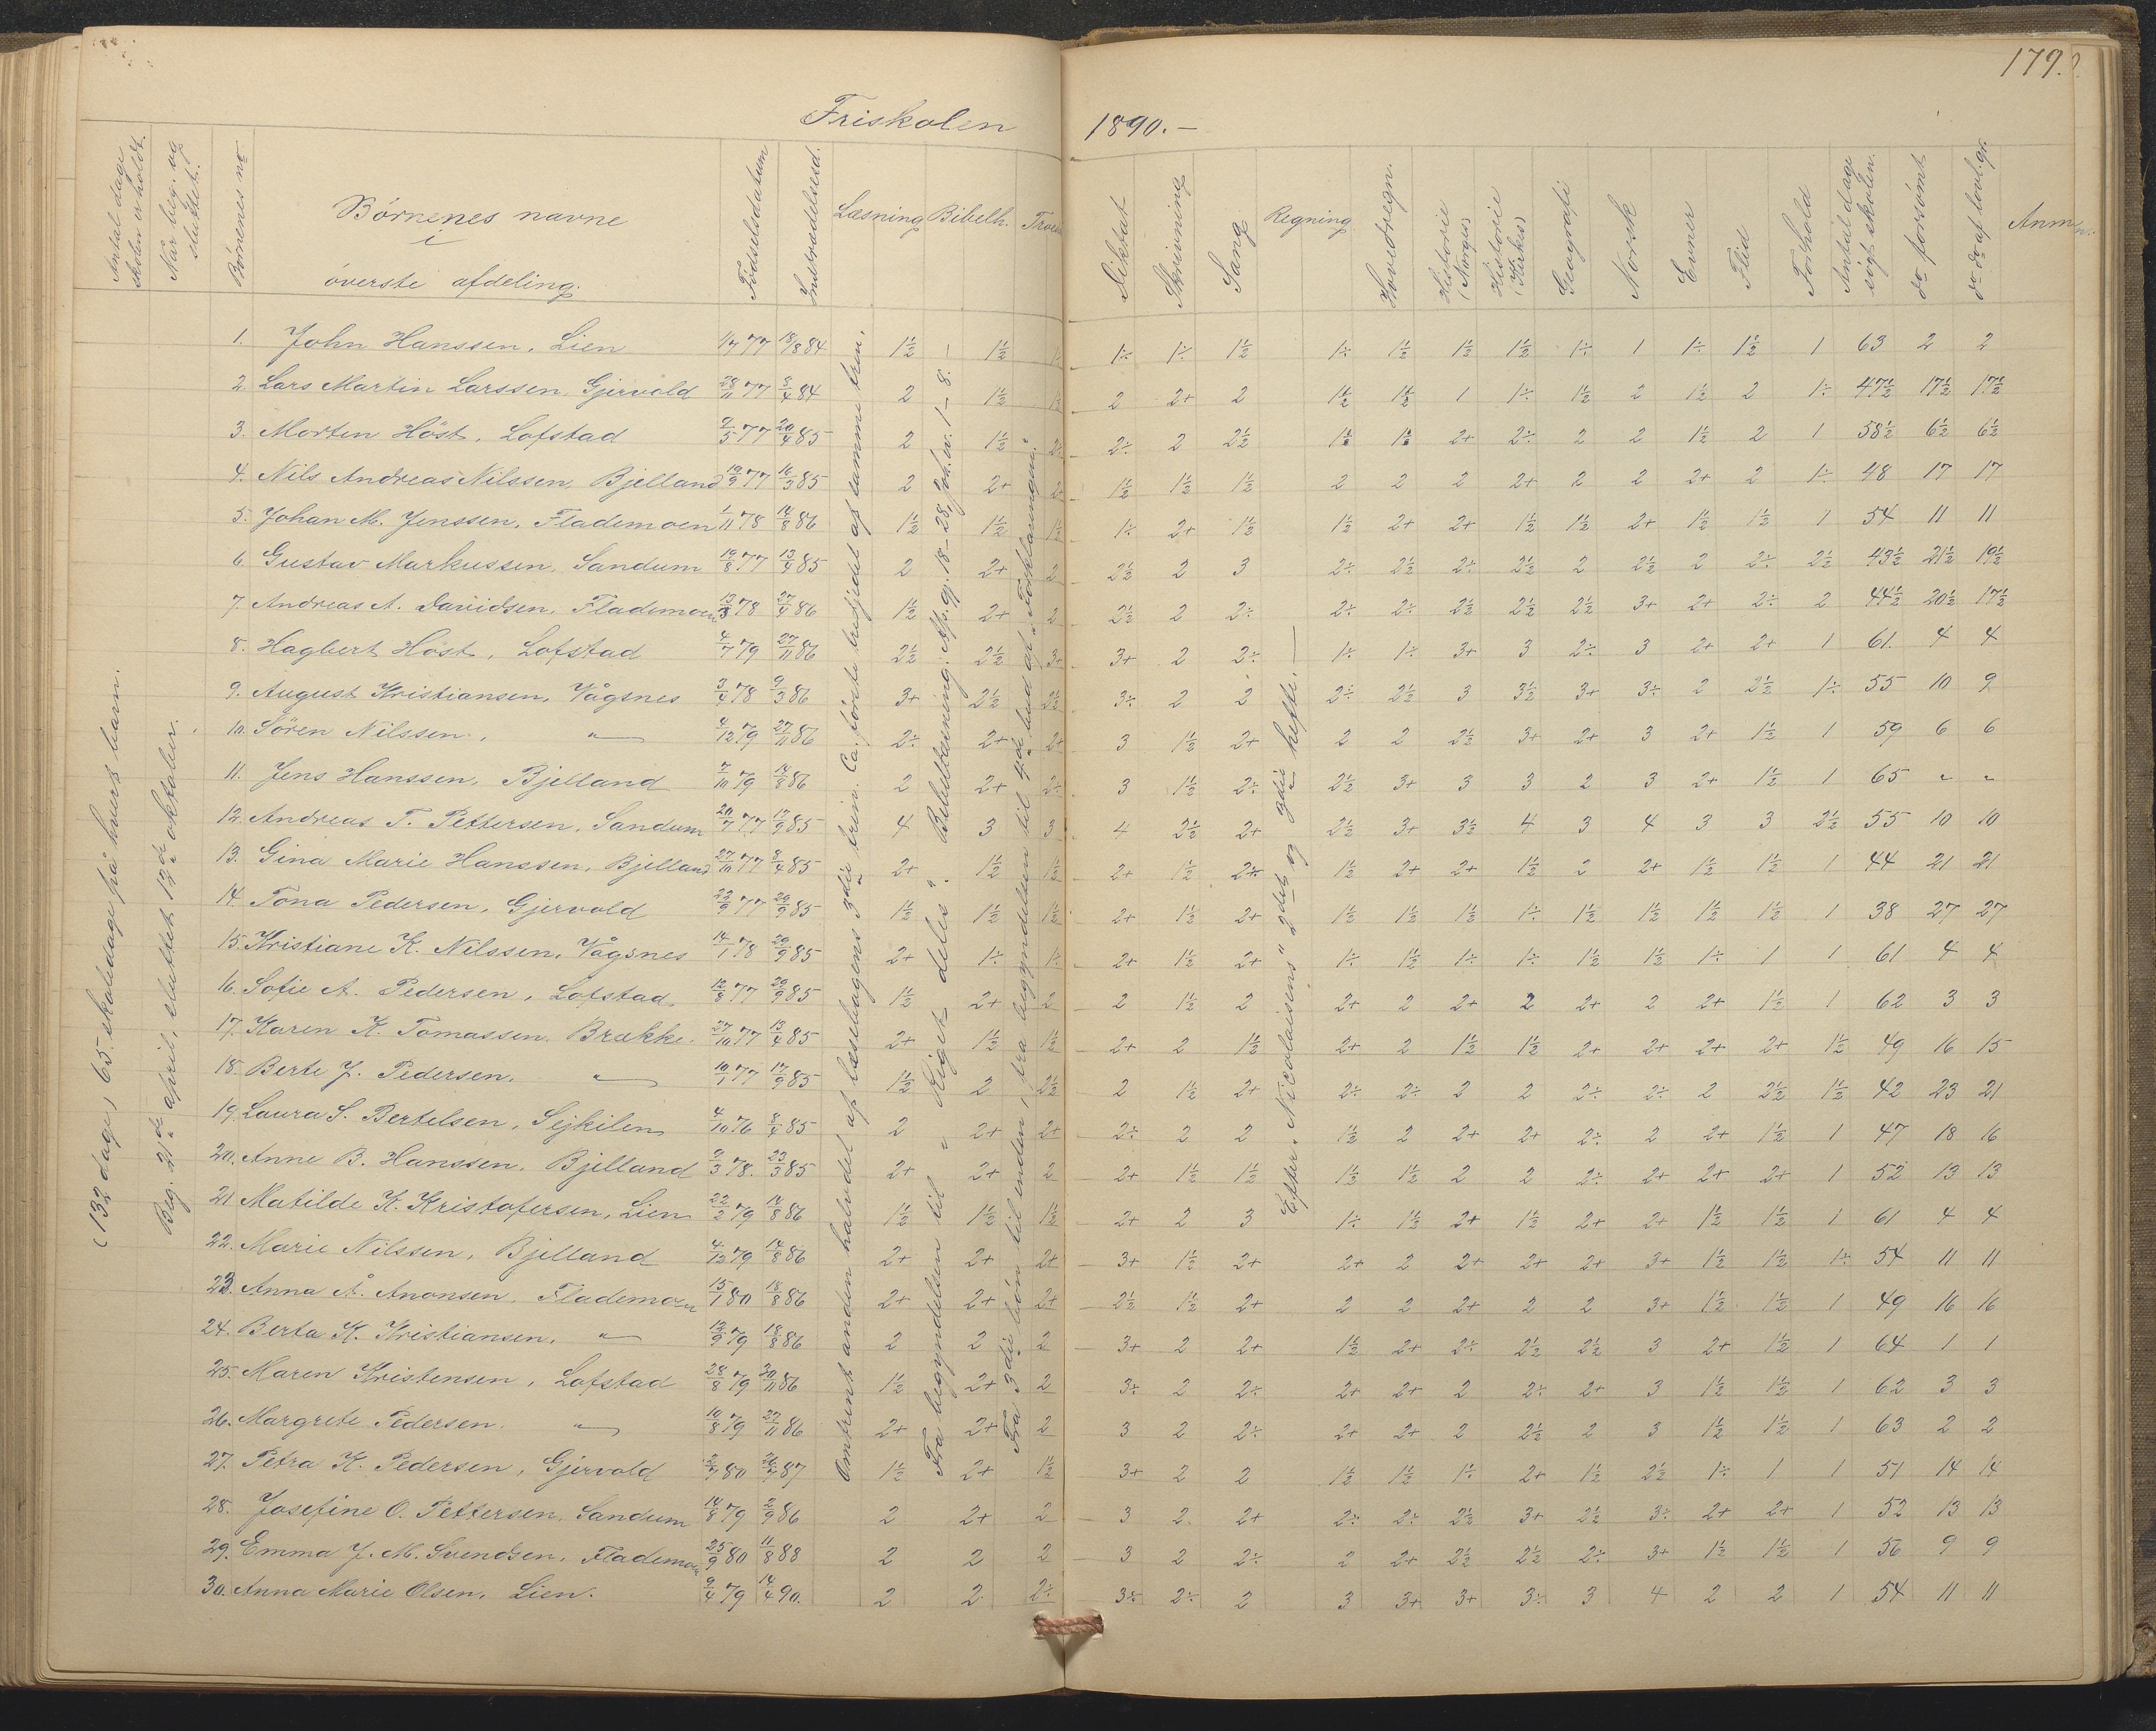 179.
Friskolen 1890.–
Antal dage skolen er holdt.
Når beg. og sluttet.
Børnenes no
Børnenes navne i øverste afdeling.
Fødselsdatum
Indtrædelsesd.
Læsning
Bibelh.
Troesl
Diktat
Skrivning
Sang
Regning
Hovedregn.
Historie (Norges)
Historie (Kirkes)
Geografi
Norsk
Evner
Flid
Forhold
Antal dage søgt skolen.
do forsømt
do do af lovl. gr.
Anm
(132 dage) 65 skoledage på hvert barn.
Beg. 21de april, sluttet 13de oktober.
Omtrent anden halvdel af læsebogens 3die trin. Ca. første trediedel af samme trin.
Fra begyndelsen til „Riget deles". Bibeltræning: Ap. gj. 18–28, Joh. ev. 1–8.
Fra 3die bøn til enden, fra begyndelsen til 4de bud af „Forklaringen".
Efter „Nicolaisens" 2det og 3die hefte. —
1. John Hanssen, Lien 1/7 77 18/8 84 1½ 1½ 1÷ 1÷ 1½ 1÷ 1½ 1½ 1½ 1÷ 1 1÷ 1½ 1 63 2 2
2. Lars Martin Larssen, Gjervold 28/11 77 8/4 84 2 1½ 1½ 2 2+ 2 1½ 1½ 1 1÷ 1½ 2 1½ 2 1÷ 47½ 17½ 17½
3. Morten Høst, Lofstad 2/5 77 20/4 85 2 1½ 2÷ 2÷ 2 2½ 1½ 1½ 2+ 2÷ 2 2 1½ 2 1 58½ 6½ 6½
4. Nils Andreas Nilssen, Bjelland 19/9 77 16/3 85 2 2+ 2+ 1½ 1½ 1½ 2 2 2 2+ 2 2 2+ 2 1÷ 48 17 17
5. Johan M. Jenssen, Flademoen 1/11 78 14/8 86 1½ 1½ 1½ 1÷ 2+ 1½ 1½ 2+ 2+ 1½ 1½ 2+ 1½ 1½ 1 54 11 11
6. Gustav Markussen, Sandum 19/8 77 13/4 85 2 2+ 2 2½ 2 3 2÷ 2½ 2÷ 2½ 2 2½ 2 2÷ 2½ 43½ 21½ 19½
7. Andreas A. Davidsen, Flademoen 13/3 78 27/4 86 1½ 2+ 2 2½ 2 2÷ 2÷ 2÷ 2½ 2½ 2½ 3+ 2+ 2÷ 2 44½ 20½ 17½
8. Hagbert Høst, Lofstad 4/7 79 27/11 86 2½ 2½ 3+ 3+ 2 2÷ 1÷ 1÷ 3+ 3 2÷ 3 2+ 2+ 1 61 4 4
9. August Kristiansen, Vågsnes 3/4 78 9/3 86 3+ 2½ 2½ 3÷ 2 2 2÷ 2½ 3 3½ 3+ 3÷ 2 2½ 1÷ 55 10 9
10. Søren Nilssen, „ 4/12 79 27/11 86 2÷ 2+ 2+ 3 1½ 2+ 2 2 2½ 3+ 2+ 3 2+ 1½ 1 59 6 6
11. Jens Hanssen, Bjelland 7/10 79 14/8 86 2 2+ 2÷ 3 1½ 2÷ 2½ 3+ 3 3 2 3 2+ 1½ 1 65 „ „
12. Andreas T. Pettersen, Sandum 20/7 77 17/9 85 4 3 3 4 2½ 2+ 2½ 3+ 3½ 4 3 4 3 3 2½ 55 10 10
13. Gina Marie Hanssen, Bjelland 27/10 77 8/4 85 2+ 1½ 1½ 2+ 1½ 2÷ 1½ 2+ 2+ 1½ 2 2+ 1½ 1½ 1 44 21 21
14. Tona Pedersen, Gjervold 22/9 77 29/9 85 1½ 1½ 1½ 2+ 1½ 2+ 1½ 1½ 1½ 1÷ 1½ 1½ 1½ 1½ 1 38 27 27
15. Kristiane K. Nilssen, Vågsnes 14/1 78 29/9 85 2+ 1÷ 1÷ 2+ 1½ 2+ 1÷ 1½ 1÷ 1÷ 1½ 1½ 1÷ 1 1 61 4 4
16. Sofie A. Pedersen, Lofstad 12/8 77 29/9 85 1½ 2+ 2 2 1½ 2 2+ 2 2+ 2 2+ 2 2+ 1½ 1 62 3 3
17. Karen K. Tomassen, Brække. 27/10 77 13/4 85 2+ 1½ 1½ 2+ 2 1½ 2+ 2 1½ 1½ 2+ 2+ 2+ 2+ 1½ 49 16 15
18. Berte J. Pedersen, „ 10/1 77 17/9 85 1½ 2 2½ 2 1½ 2+ 2÷ 2÷ 2 2 2÷ 2÷ 2 2½ 1½ 42 23 21
19. Laura S. Bertelsen, Sejkilen 4/10 76 8/4 85 2 2+ 2+ 2÷ 2 2 1½ 2 2+ 2+ 2÷ 2 2+ 1½ 1 47 18 16
20. Anne B. Hanssen, Bjelland 9/3 78. 23/3 85 2+ 2+ 2 2+ 1½ 1½ 1½ 1½ 2 2 2÷ 2+ 2+ 2+ 1 52 13 13
21 Matilde K. Kristofersen, Lien 22/2 79 14/8 86 1½ 1½ 1½ 2+ 2 3 1÷ 1½ 2+ 1½ 2+ 2+ 1½ 1½ 1 61 4 4
22. Marie Nilssen, Bjelland 4/12 79 14/8 86 2+ 2+ 2+ 3+ 1½ 2+ 2+ 2 2+ 2+ 2+ 3+ 1½ 1½ 1÷ 54 11 11
23. Anna Å. Anonsen, Flademoen 15/1 80 18/8 86 2+ 2+ 2+ 2½ 1½ 2+ 2 2 2+ 2 2 3+ 1½ 1½ 1 49 16 16
24. Berta K. Kristiansen, „ 12/9 79 18/8 86 2 2 2 3+ 2 2+ 1½ 2+ 2÷ 2½ 2½ 3 2+ 1½ 1 64 1 1
25. Maren Kristensen, Lofstad 28/8 79 30/11 86 1½ 2+ 2 3÷ 2 2÷ 2+ 2+ 2 2÷ 2+ 3 1½ 1½ 1 62 3 3
26. Margrete Pedersen „ 10/8 79 27/11 86 2+ 2+ 2 3 2 2÷ 2+ 2+ 2 2½ 2 3 1½ 1½ 1 63 2 2
27. Petra K. Pedersen, Gjervold 2/7 80 26/7 87 1½ 2+ 1½ 3+ 2 2 1½ 1½ 1÷ 2+ 1½ 2½ 1÷ 1 1 51 14 14
28. Josefine O. Pettersen, Sandum 14/8 79 2/9 86 2 2+ 2 3 2 2+ 2÷ 2÷ 2½ 3+ 2½ 3÷ 2+ 2+ 1 52 13 13
29. Emma J. M. Svendsen, Flademoen 25/9 80 11/8 88 2 2 2 3 2 2÷ 2 2+ 2½ 2½ 2÷ 3+ 1½ 1½ 1 56 9 9
30. Anna Marie Olsen, Lien. 9/4 79 14/4 90. 2 2 2÷ 3÷ 2÷ 2 3 3+ 3+ 3÷ 3 4 2 2 1 54 11 11